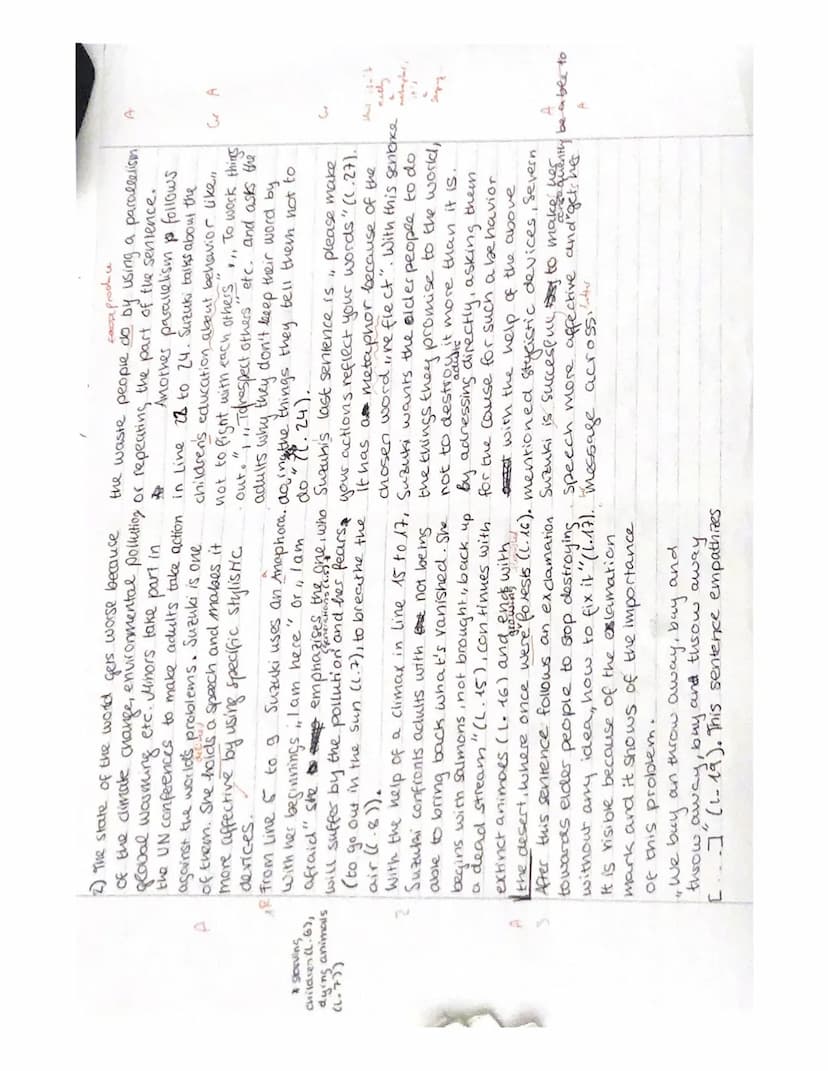 2) The state of the world gets worse because
of the climate change, environmental pollution,
global warming etc. Minors take part in
the UN conferences to make adults take action
against the worlds problems. Suzuki is one
of them. She holds a speech and makes it
delivers
more affective by using specific stylistic
devices.
From Line 5 to 9 Suzuki uses an Anaphora.
With her beginnings „I am here" or „I am
afraid" she emphazises the one, who
generations (L.4)
will suffer by the pollution and her fears*
(to go out in the sun (L.7), to breathe the
air (L.8)).
* starving
children (L.6),
dying animals
(L.7))
With the help of a climax in Line 15 to 17,
Suzuki confronts adults with not being
able to bring back what's vanished. She
begins with salmons, not brought „back up
a dead stream" (L.15), continues with
extinct animals (L.16) and ends with
growing
the desert, where once were forests (L.16).
After this sentence follows an exclamation
towards elder people to stop destroying
without any idea „how to fix it" (L.17).
It is visible because of the exclamation
mark and it shows of the importance
of this problem.
„We buy an throw away, buy and
throw away, buy and throw away
[....]" (L.19). This sentence empathizes
the waste people do by using a parallelism
produce
or repeating the part of the sentence.
Another parallelism follows
in Line 22 to 24. Suzuki talks about the
children's education about behavior like „
not to fight with each others", „To work things
out.", „To respect others" etc. and asks the
adults why they don't keep their word by
„doing the things they tell them not to
do" (L.24).
Suzuki's last sentence is „please make
your actions reflect your words" (L.27).
It has a metaphor because of the
chosen word „reflect". With this sentence
Suzuki wants the elder people to do
the things they promise to the world,
not to destroy it more than it is.
By adressing directly, asking them
adults
for the cause for such a behavior
with the help of the above
mentioned stylistic devices, Severn
Suzuki is succesful to make her
speech more affective and get her
be able to
message across.
A
A
A
Gr
A
Gr
this isn't
really
a
metaphor,
it's
a
A
A
2
3